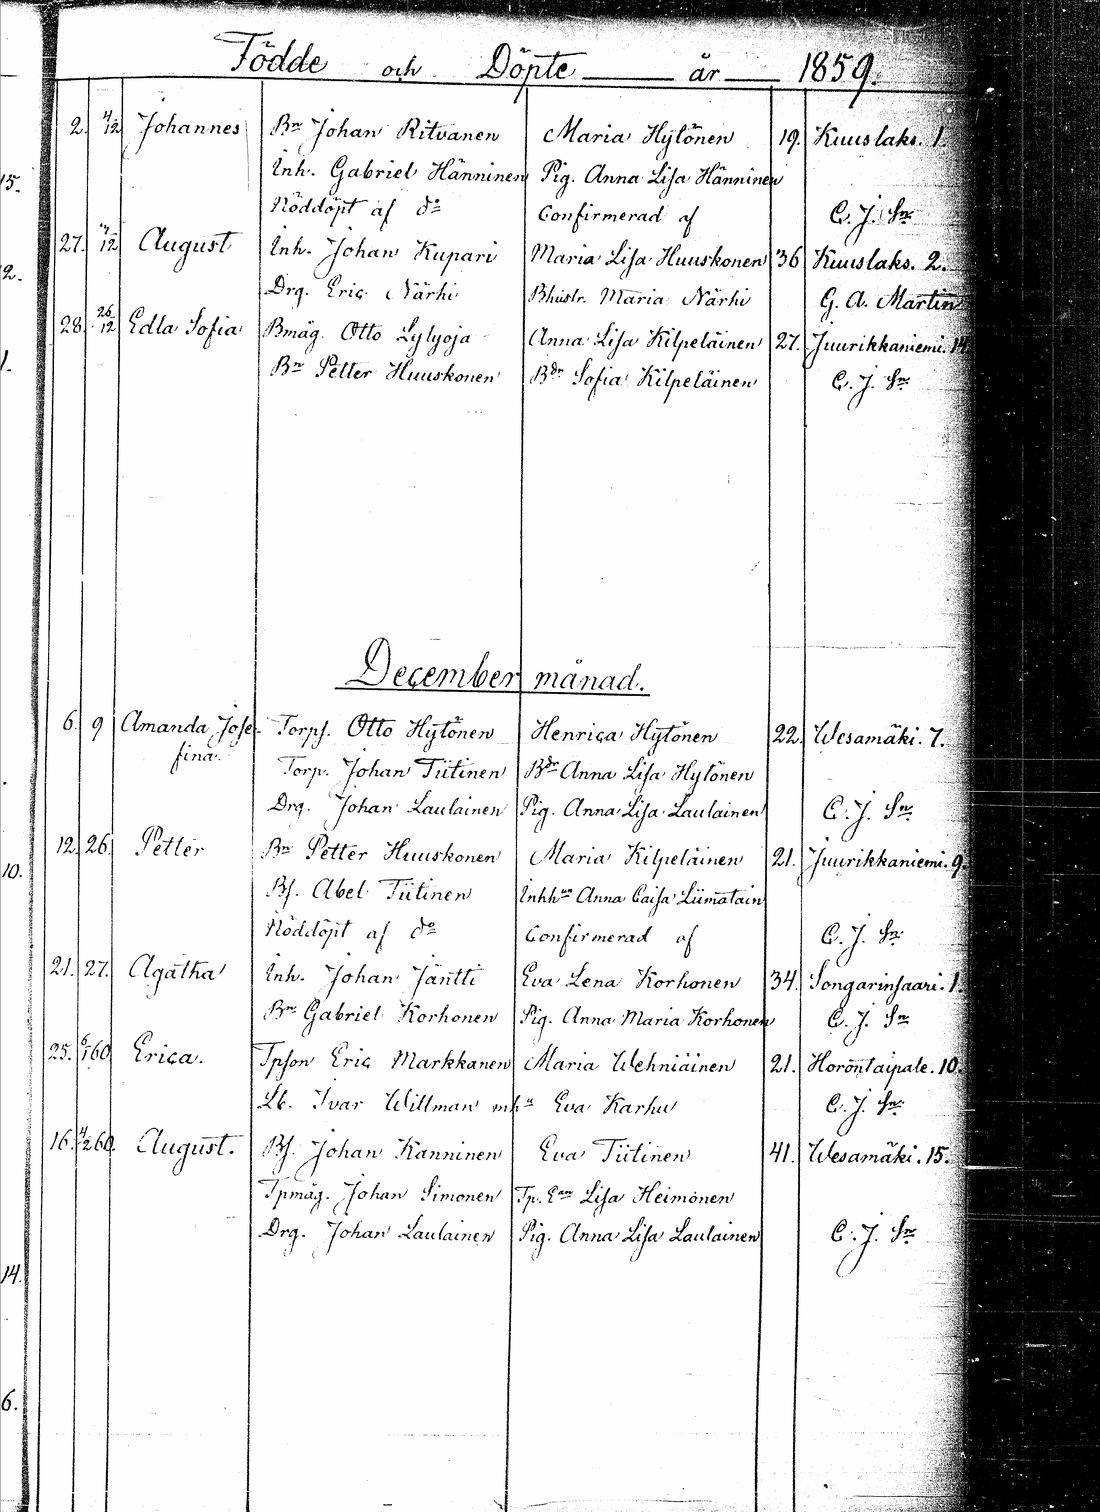 Födde och Döpte ——— år —— 1859.
2. 4/12 Johannes Bn Johan Ritvanen Maria Hytönen 19. Kuuslaks. 1.
15. Inh. Gabriel Hänninen Pig. Anna Lisa Hänninen
Nöddöpt af do Confirmerad af C. J. Sn
27. 4/12 August Inh. Johan Kupari Maria Lisa Huuskonen 36 Kuuslaks. 2.
2. Drg. Eric Närhi Bhustr. Maria Närhi G. A. Martin
28. 26/12 Edla Sofia Bmåg. Otto Lylyoja Anna Lisa Kilpeläinen 27. Juurikkaniemi. 14.
1. Bn Petter Huuskonen Bdr Sofia Kilpeläinen C. J. Sn
December månad.
6. 9 Amanda Jose- Torps. Otto Hytönen Henrica Hytönen 22. Wesamäki. 7.
fina. Torp. Johan Tiitinen Bdr Anna Lisa Hytönen
Drg. Johan Laulainen Pig. Anna Lisa Laulainen C. J. Sn
12. 26. Petter Bn Petter Huuskonen Maria Kilpeläinen 21. Juurikkaniemi. 9.
10. Bs. Abel Tiitinen Inhhun Anna Caisa Liimatain
Nöddöpt af do Confirmerad af C. J. Sn
21. 27. Agatha Inh. Johan Jäntti Eva Lena Korhonen 34. Songarinsaari. 1.
Bn Gabriel Korhonen Pig. Anna Maria Korhonen C. J. Sn
25. 6/1 60 Erica. Tpson Eric Markkanen Maria Wehniäinen 21. Horontaipale. 10.
Lb. Ivar Willman mhu Eva Karhu C. J. Sn
16. 4/2 60. August. Bs. Johan Kanninen Eva Tiitinen 41. Wesamäki. 15.
Tpmåg. Johan Simonen Tp. Ean Lisa Heimonen
Drg. Johan Laulainen Pig. Anna Lisa Laulainen C. J. Sn
14.
6.